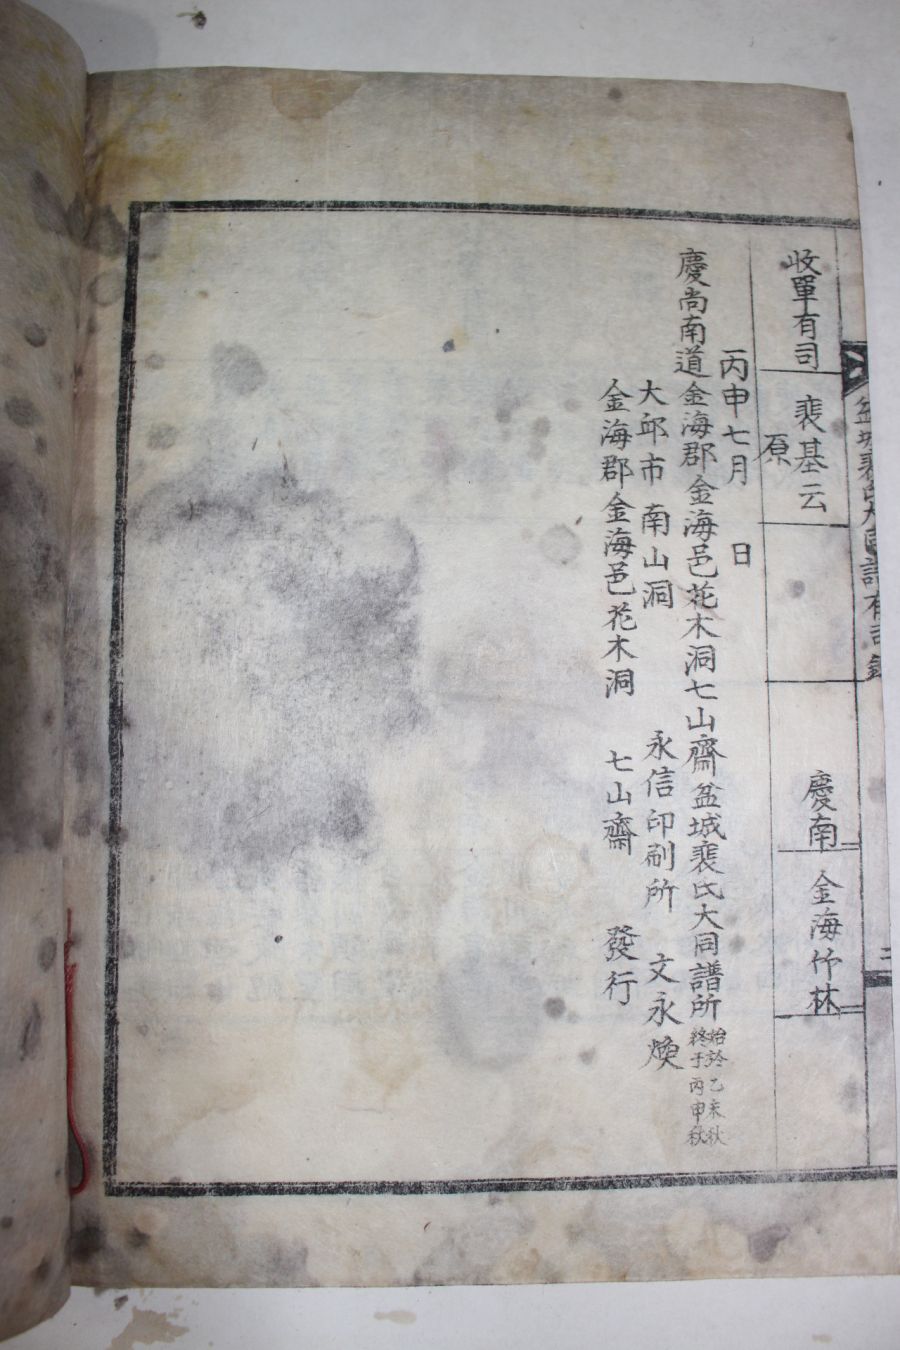 盆城裴氏大同譜有司錄
收單有司 裴基云 慶南 金海竹林
原
丙申七月 日
慶尚南道金海郡金海邑花木洞七山齋盆城裴氏大同譜所
始於乙未秋
終于丙申秋
大邱市 南山洞 永信印刷所 文永煥
金海郡金海邑花木洞 七山齋 發行